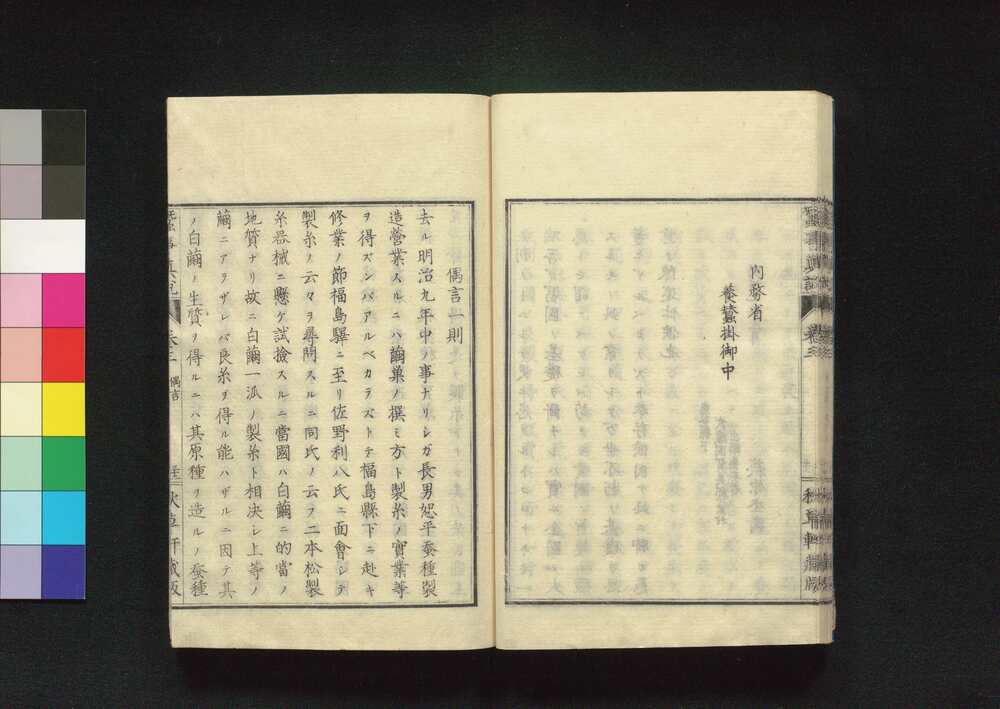 内務省
養蠶掛御中
偶言一則
去ル明治九年中ノ事ナリシガ長男恕平蚕種製
造營業スルニハ繭巣ノ撰ミ方ト製糸ノ實業等
ヲ得ズンバアルベカラズトテ福島縣下ニ赴キ
修業ノ節福島驛ニ至リ佐野利八氏ニ面會シテ
製糸ノ云々ヲ尋問スルニ同氏ノ云フ二本松製
糸器械ニ懸ケ試撿スルニ當國ハ白繭ニ的當ノ
地質ナリ故ニ白繭一派ノ製糸ト相決シ上等ノ
繭ニアラザレバ良糸ヲ得ル能ハザルニ因テ其
ノ白繭ノ生質ヲ得ルニハ其原種ヲ造ルノ蚕種
卷三
偶言